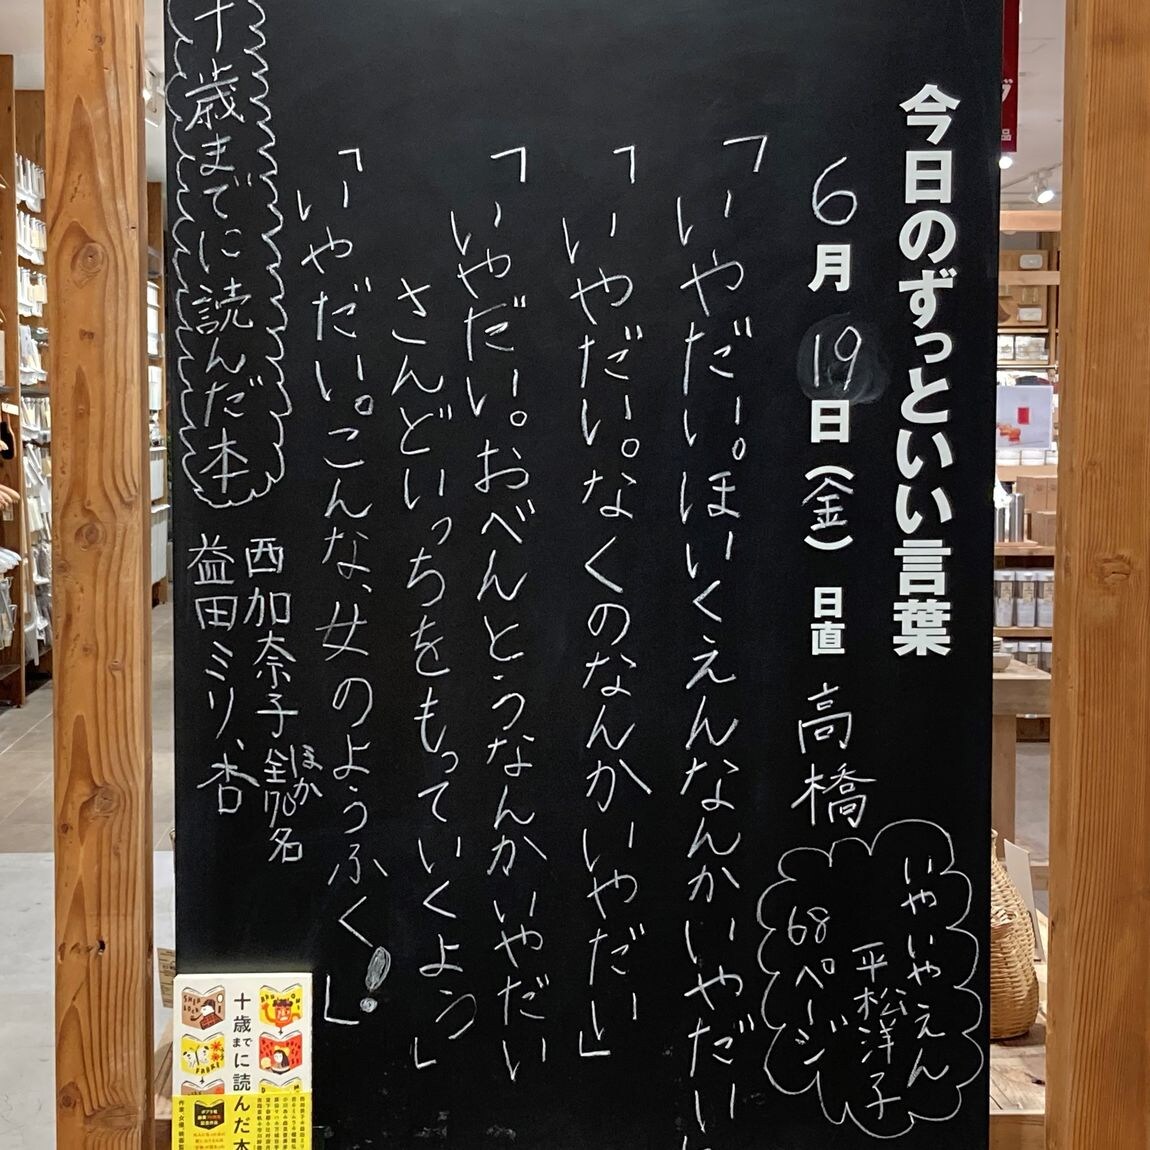 今日のずっといい言葉
6月19日(金) 日直 高橋
いやいやえん
平松洋子
68ページ
「いやだい。ほいくえんなんかいやだい
「いやだい。なくのなんかいやだい」
「いやだい。おべんとうなんかいやだい
さんどいっちをもっていくよう」
「いやだい。こんな、女のようふく!」
十歳までに読んだ本
西加奈子
ほか
全70名
益田ミリ、杏
十歳までに読んだ本